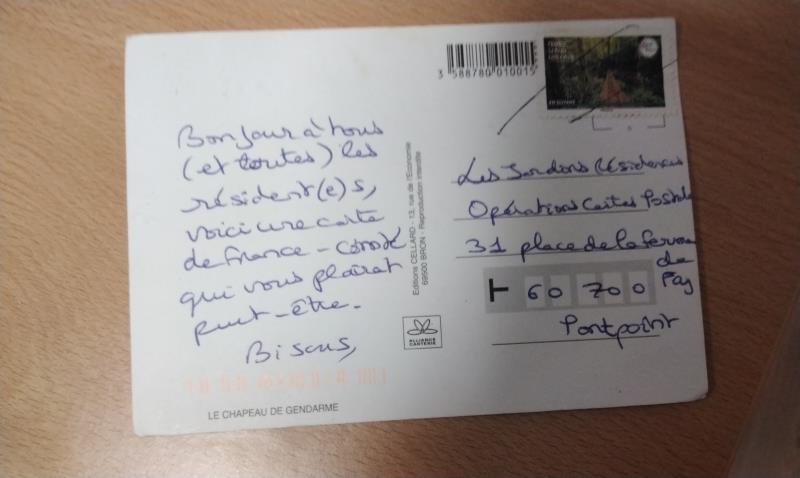 3 588780 010015
EN GUYANE
Bonjour à tous
(et toutes) les
résident(e)s,
voici une carte
de France - Comté
qui vous plairat
peut-être.
Bisous,
Editions CELLARD - 13, rue de l'Economie
69500 BRON - Reproduction interdite
ALLIANCE
CARTERIE
Les Jardins Résidences
Opérations Cartes Postale
31 place de la ferme
de
60 700
Pontpoint
LE CHAPEAU DE GENDARME